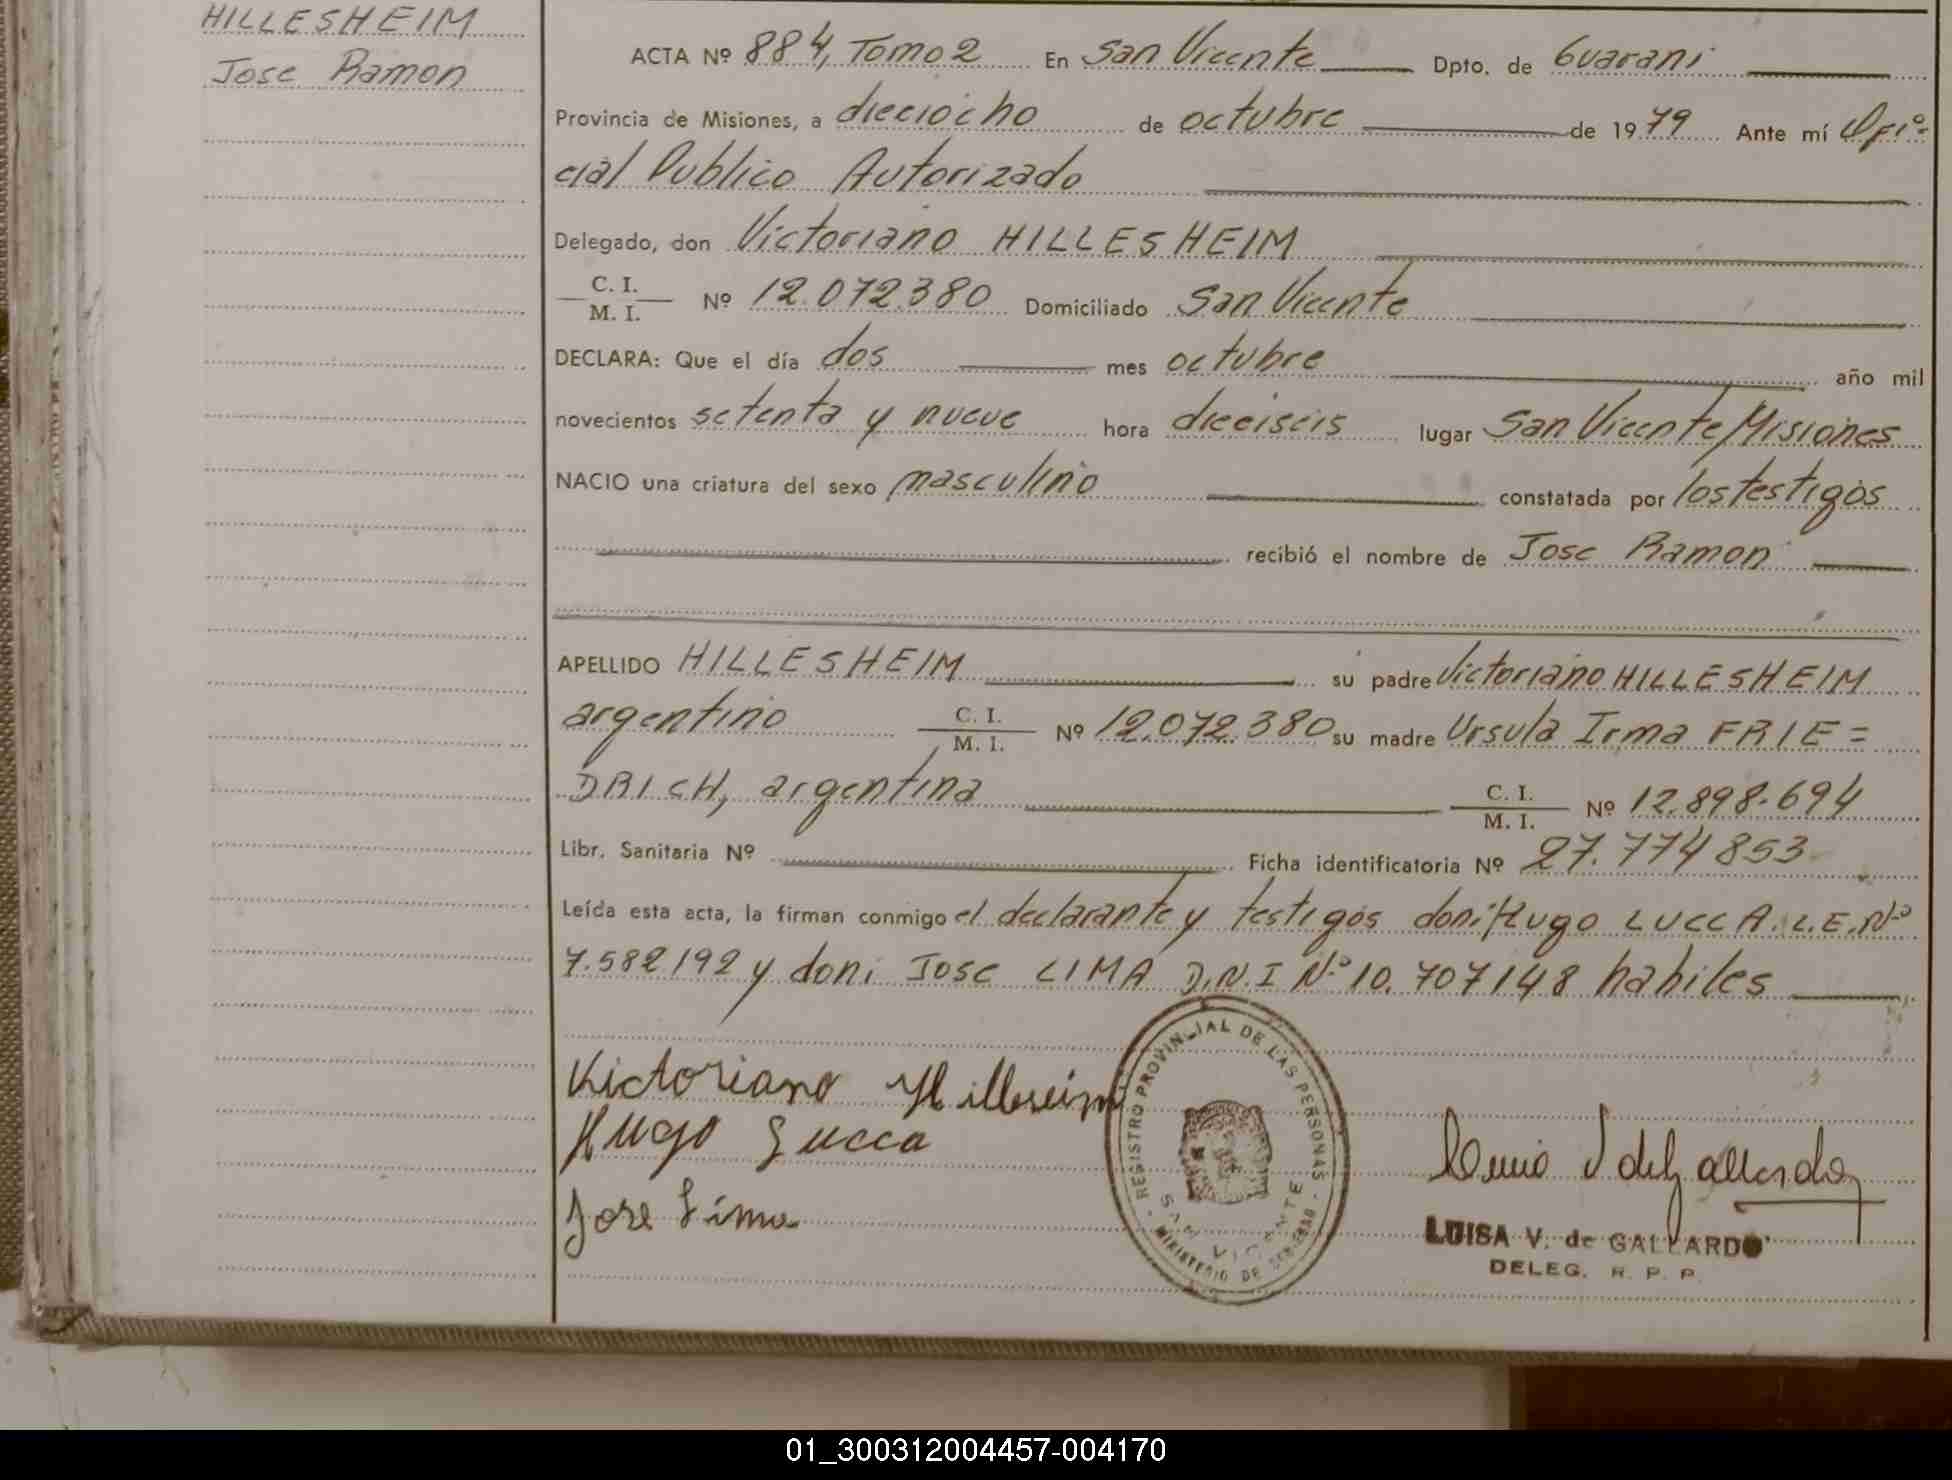 HILLESHEIM
Jose Ramon
ACTA Nº 884, Tomo 2 En San Vicente Dpto. de Guarani
Provincia de Misiones, a dieciocho de octubre de 1979 Ante mí Ofi=
cial Publico Autorizado
Delegado, don Victoriano HILLESHEIM
C. I.
M. I. Nº 12.072.380 Domiciliado San Vicente
DECLARA: Que el día dos mes octubre año mil
novecientos setenta y nueve hora dieciseis lugar San Vicente, Misiones
NACIO una criatura del sexo masculino constatada por los testigos
recibió el nombre de Jose Ramon
APELLIDO HILLESHEIM su padre Victoriano HILLESHEIM
argentino C. I.
M. I. Nº 12.072.380 su madre Ursula Irma FRIE=
DRICH, argentina C. I.
M. I. Nº 12.898.694
Libr. Sanitaria Nº Ficha identificatoria Nº 27.774853
Leída esta acta, la firman conmigo el declarante y testigos doni Hugo LUCCA. L.E. Nº
7.582192 y doni Jose LIMA D.N.I Nº 10.707148 habiles
Victoriano Hilleseim
Hugo Lucca
Jose Lima
REGISTRO PROVINCIAL DE LAS PERSONAS
SAN VICENTE
MINISTERIO DE GOBIERNO
LUISA V. de GALLARDO
DELEG. R. P. P.
01_300312004457-004170